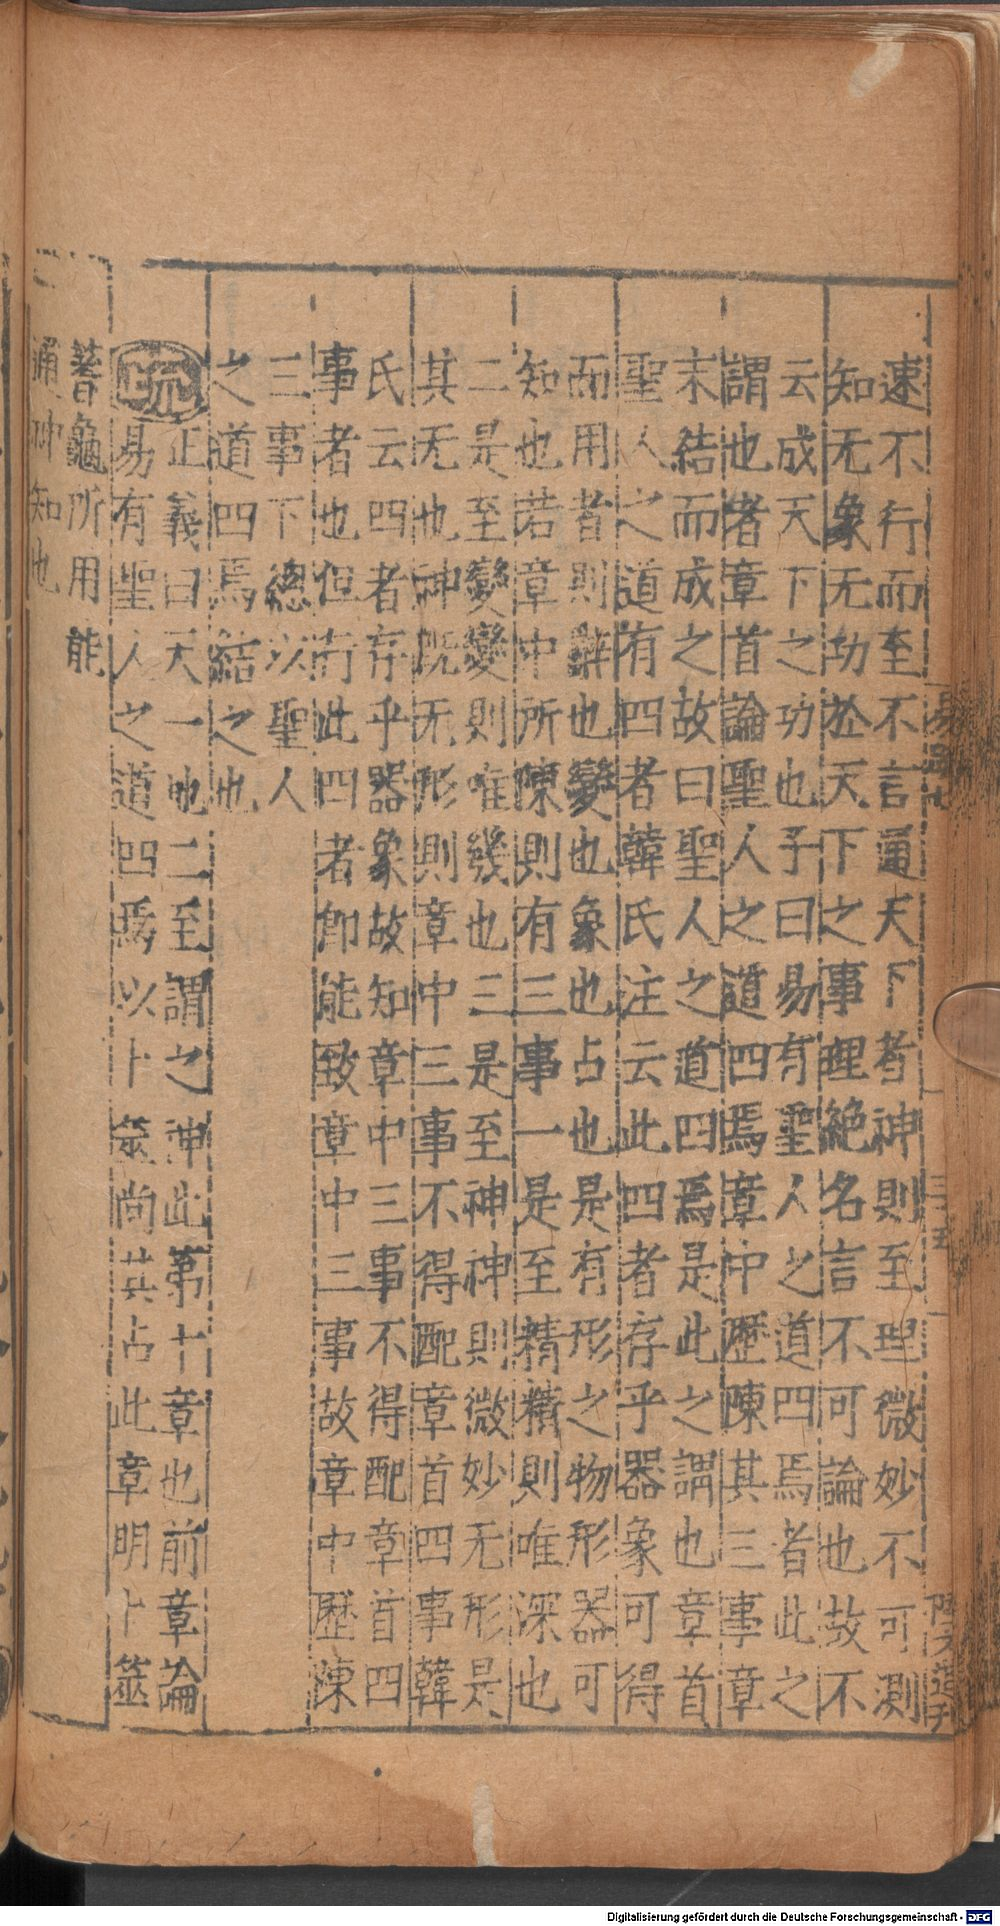 速不行而至不言通天下者神則至理微妙不可測
知无象无功於天下之事理絶名言不可論也故不
云成天下之功也子曰易有聖人之道四焉者此之
謂也者章首論聖人之道四焉章中歷陳其三事章
末結而成之故曰聖人之道四焉是此之謂也章首
聖人之道有四者韓氏注云此四者存乎器象可得
而用者則辭也變也象也占也是有形之物形器可
知也若章中所陳則有三事一是至精精則唯深也
二是至變變則唯幾也三是至神神則微妙无形是
其无也神旣无形則章中三事不得配章首四事韓
氏云四者存乎器象故知章中三事不得配章首四
事者也但有此四者卽能致章中三事故章中歷陳
三事下緫以聖人
之道四焉結之也
疏
正義曰天一地二至謂之神此第十章也前章論
易有聖人之道四焉以卜筮尚其占此章明卜筮
蓍龜所用能
通神知也
三十五
Digitalisierung gefördert durch die Deutsche Forschungsgemeinschaft - DFG